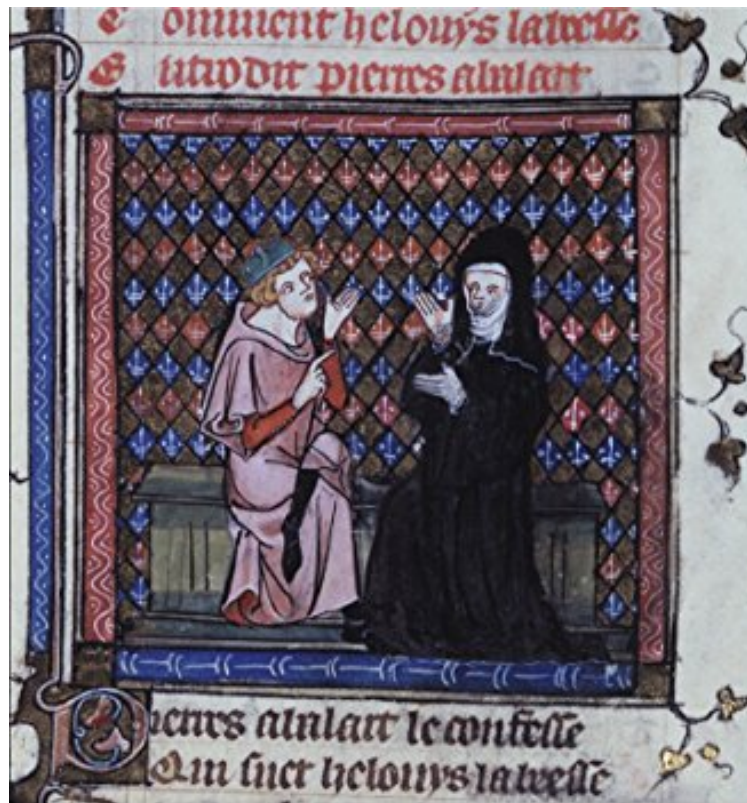 Comment helouys labeesse
pierres abalart
Pierres abalart le confesse
Qui suer helouys labeesse